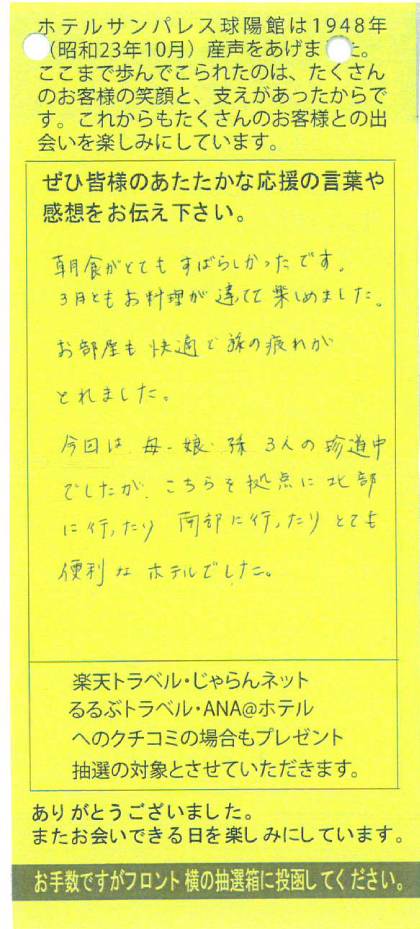 ホテルサンパレス球陽館は1948年
（昭和23年10月）産声をあげました。
ここまで歩んでこられたのは、たくさん
のお客様の笑顔と、支えがあったからで
す。これからもたくさんのお客様との出
会いを楽しみにしています。
ぜひ皆様のあたたかな応援の言葉や
感想をお伝え下さい。
朝食がとても すばらしかったです。
3月ともお料理が違くて 楽しめました。
お部屋も 快適で 旅の疲れが
とれました。
今回は、母・娘・孫 3人の珍道中
でしたが、こちらを拠点に 北部
に行ったり 南部に行ったり とても
便利な ホテルでした。
楽天トラベル・じゃらんネット
るるぶトラベル・ANA@ホテル
へのクチコミの場合もプレゼント
抽選の対象とさせていただきます。
ありがとうございました。
またお会いできる日を楽しみにしています。
お手数ですがフロント横の抽選箱に投函してください。